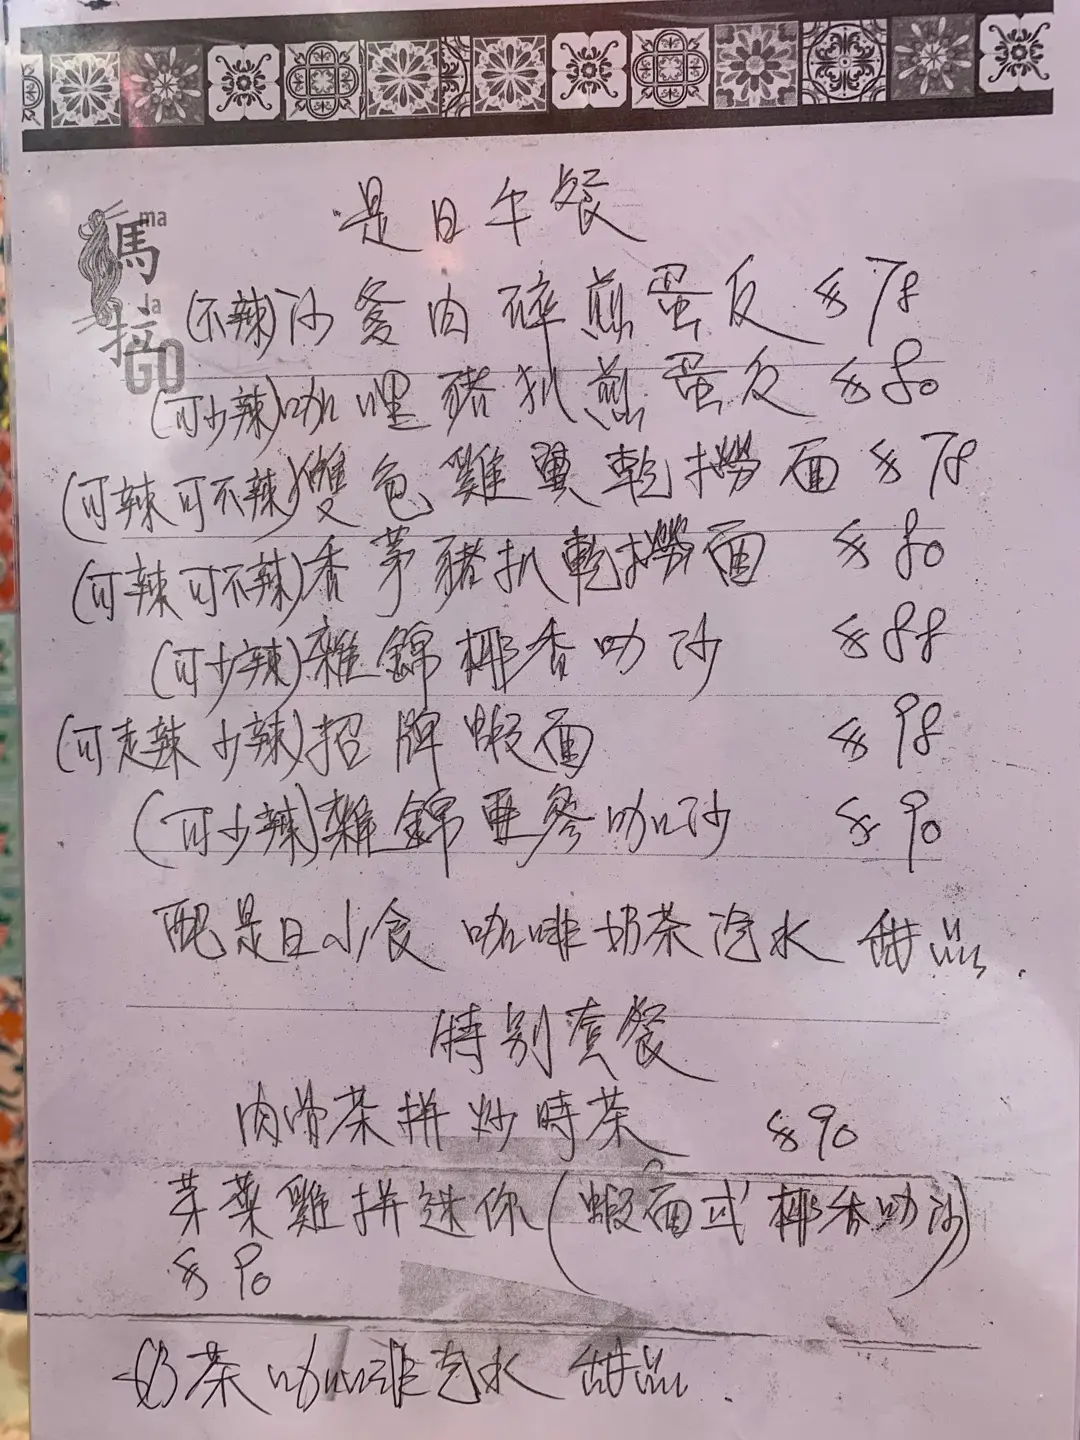 ma
馬
la
拉
GO
是日午餐
(不辣)沙爹肉碎煎蛋反 $78
(可少辣)咖哩豬扒煎蛋反 $80
(可辣可不辣)雙色雞翼乾撈面 $78
(可辣可不辣)香茅豬扒乾撈面 $80
(可少辣)雜錦椰香叻沙 $88
(可走辣少辣)招牌蝦面 $98
(可少辣)雜錦亜參叻沙 $90
配是日小食 咖啡奶茶汽水 甜品.
特別套餐
肉骨茶拼炒時菜 $90
芽菜雞拼迷你(蝦面或椰香叻沙)
$90
奶茶咖啡汽水 甜品.